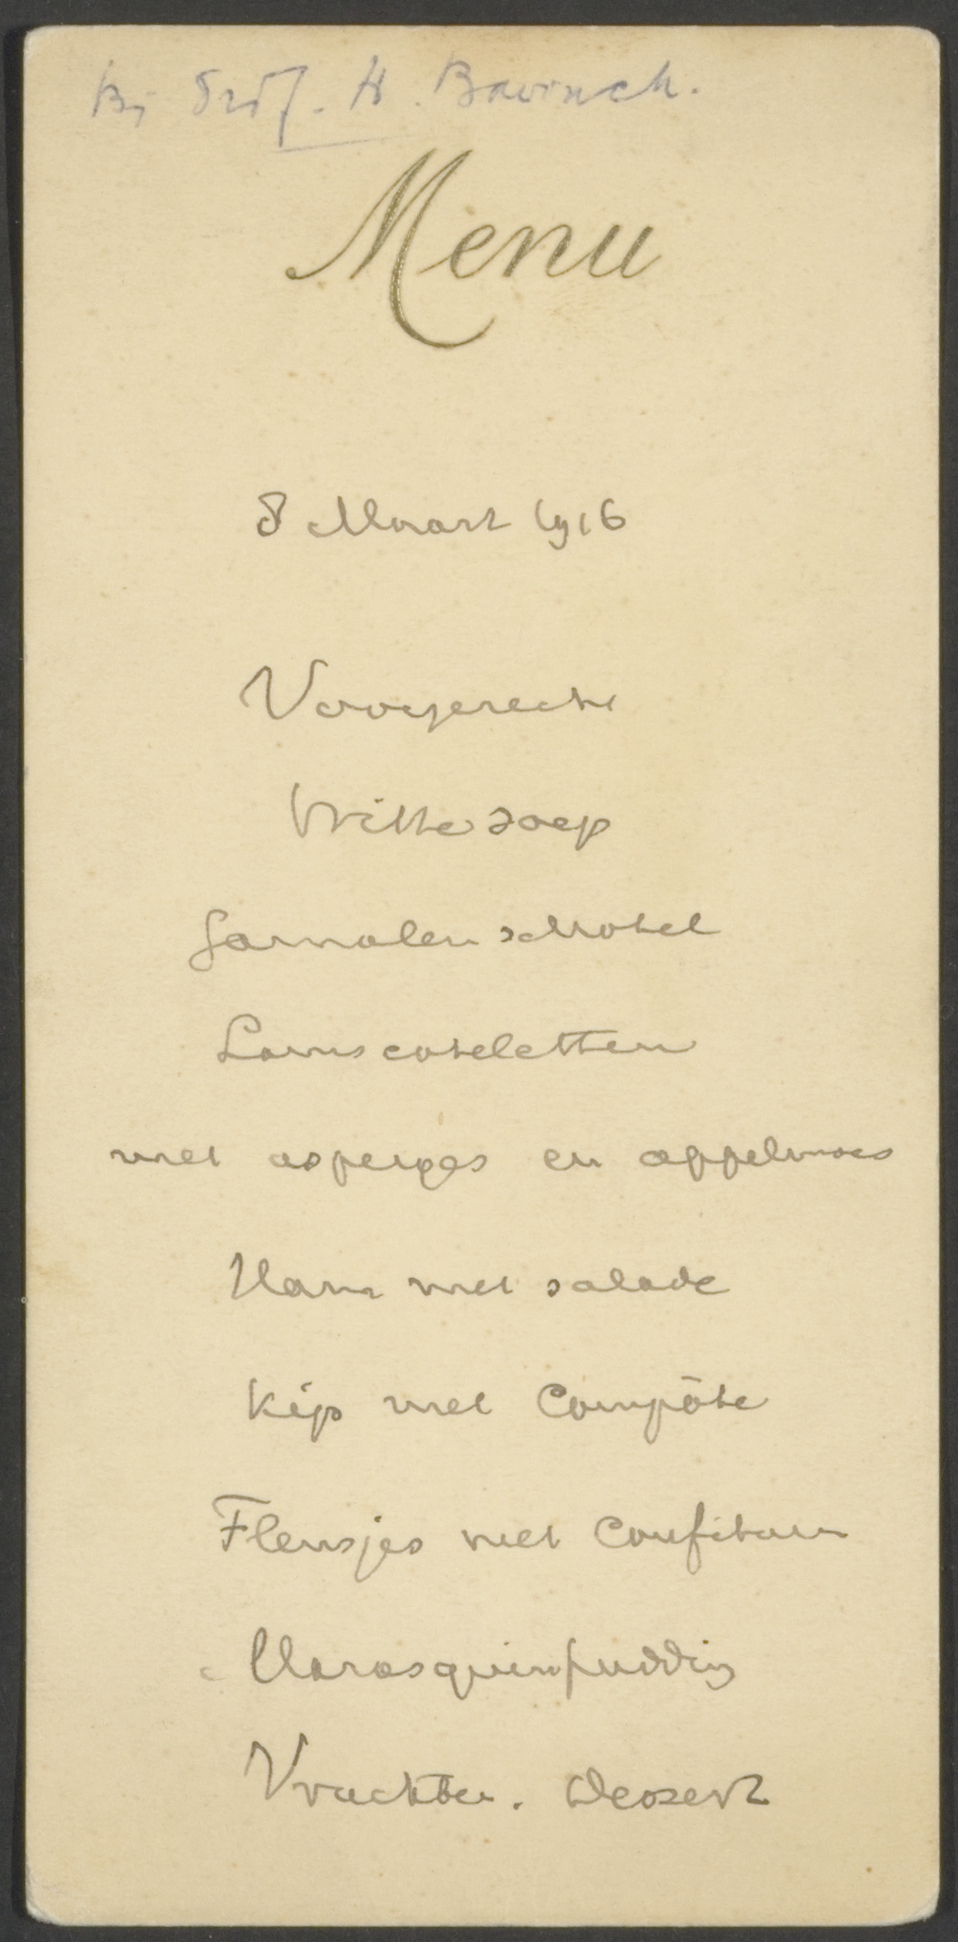 Bij Prof. H. Bavinck.
Menu
8 Maart 1916
Voorgerecht
Witte soep
Garnalenschotel
Lamscoteletten
met asperges en appelmoes
Ham met salade
Kip met Compôte
Flensjes met Confituur
Marasquinpudding
Vruchten. Dessert